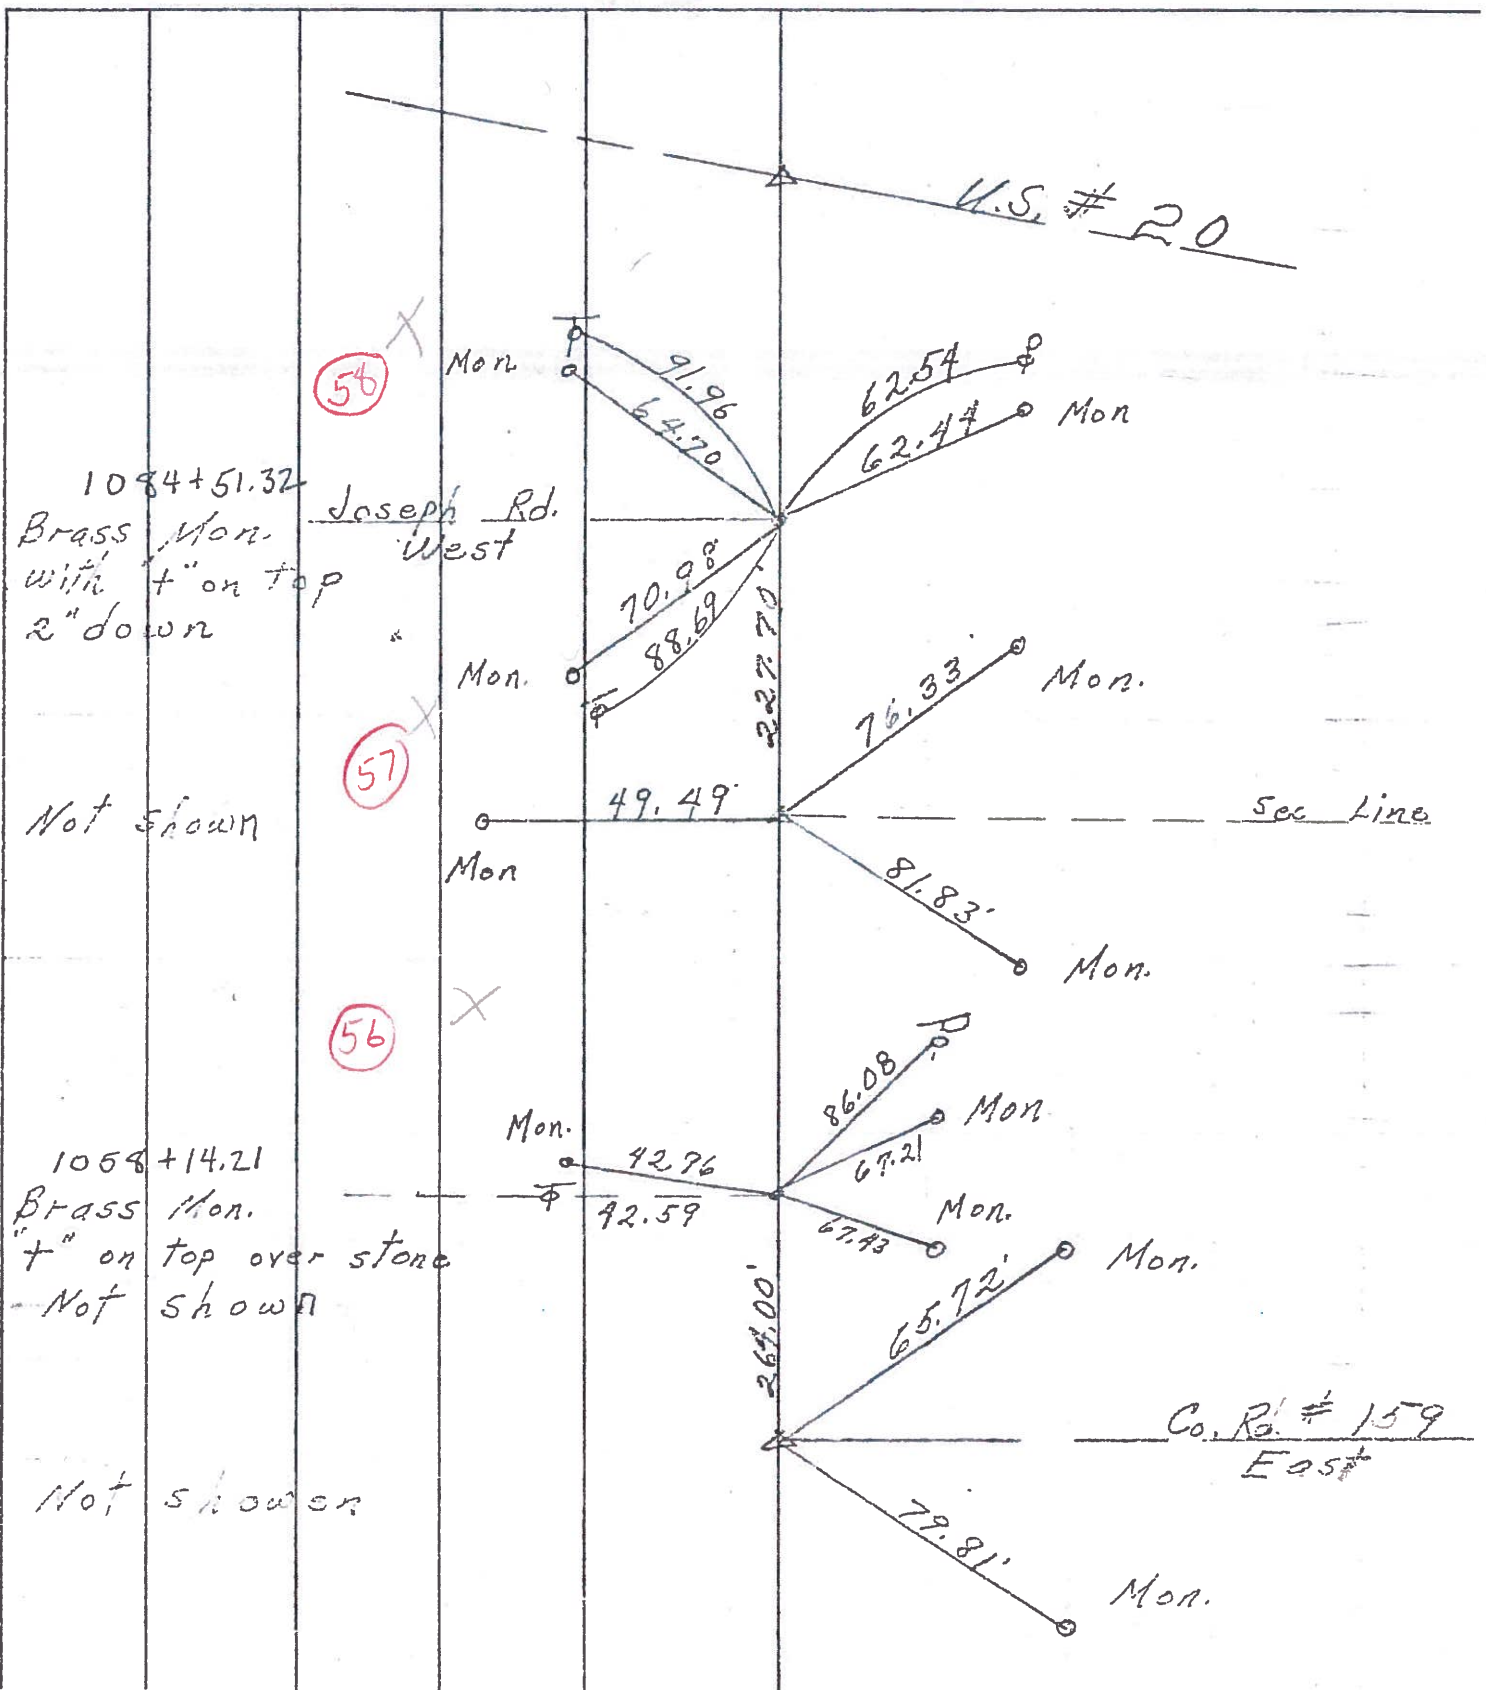 U.S. # 20
58
Mon.
91.96
64.70
62.54
62.44
Mon
1084+51.32
Brass Mon.
with "+" on top
2" down
Joseph Rd.
West
70.98
88.69
Mon.
227.70'
57
76.33'
Mon.
Not shown
49.49'
Mon
Sec Line
81.83'
Mon.
56
86.08
Mon
67.21
Mon.
1058+14.21
Brass Mon.
"+" on top over stone
Not shown
42.76
42.59
67.43
Mon.
264.00'
65.72'
Mon.
Co. Rd. # 159
East
Not showen
79.81'
Mon.